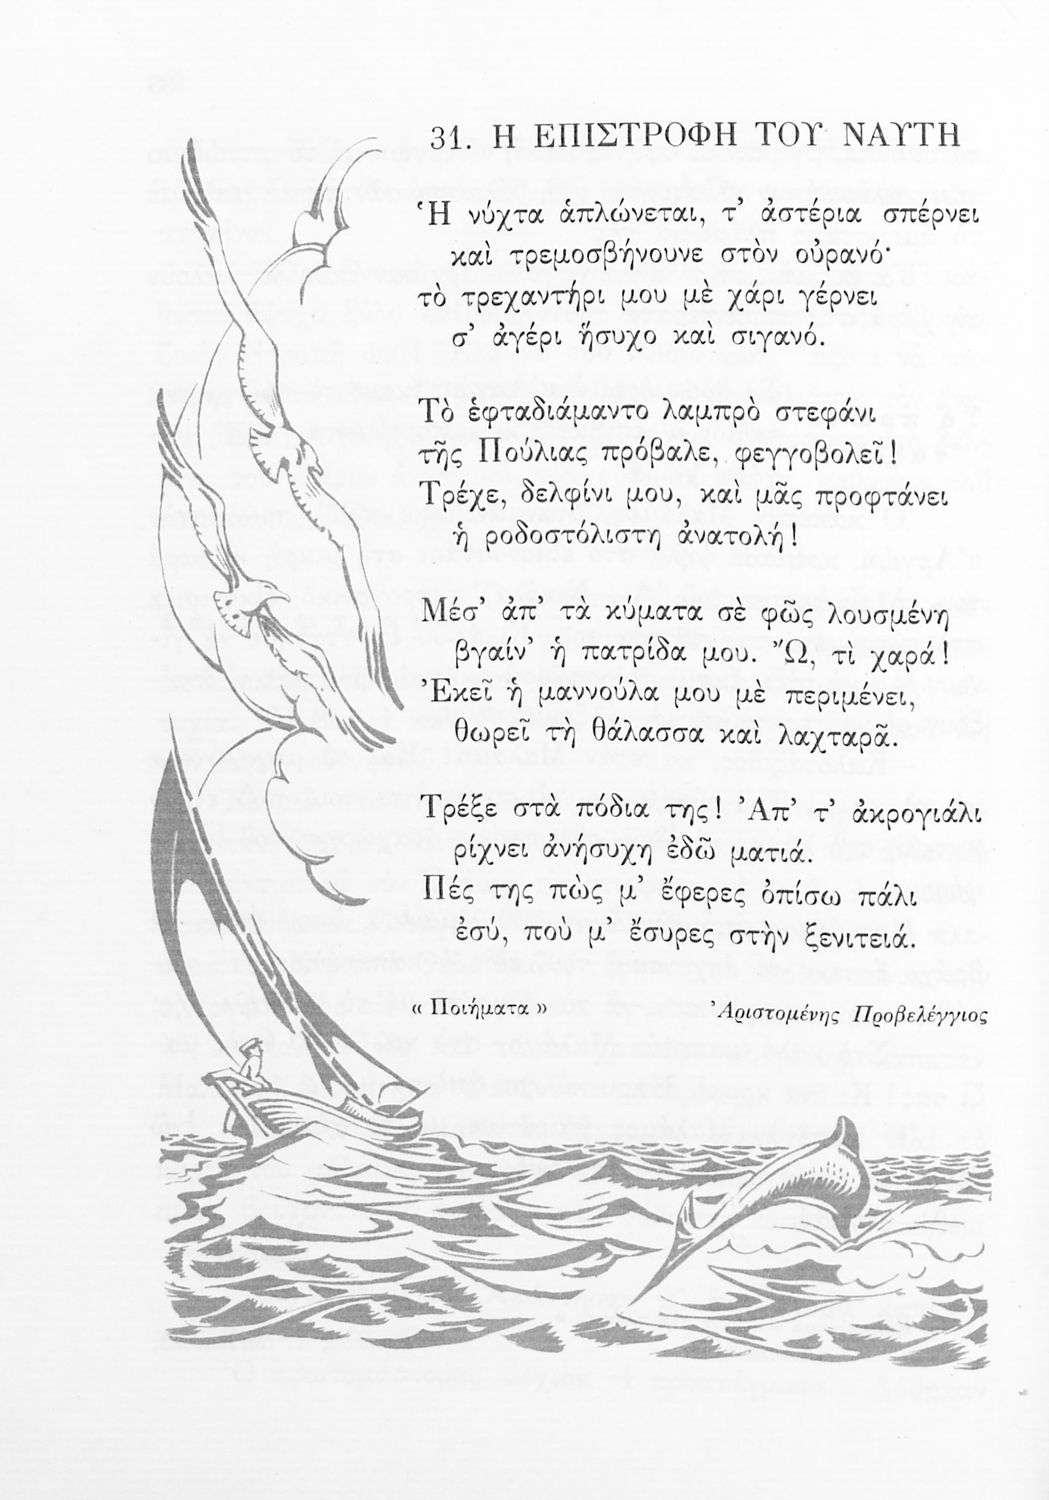 31. Η ΕΠΙΣΤΡΟΦΗ ΤΟΥ ΝΑΥΤΗ
Ἡ νύχτα ἁπλώνεται, τ’ ἀστέρια σπέρνει
καὶ τρεμοσβήνουνε στὸν οὐρανό·
τὸ τρεχαντήρι μου μὲ χάρι γέρνει
σ’ ἀγέρι ἥσυχο καὶ σιγανό.
Τὸ ἑφταδιάμαντο λαμπρὸ στεφάνι
τῆς Πούλιας πρόβαλε, φεγγοβολεῖ!
Τρέχε, δελφίνι μου, καὶ μᾶς προφτάνει
ἡ ροδοστόλιστη ἀνατολή!
Μέσ’ ἀπ’ τὰ κύματα σὲ φῶς λουσμένη
βγαίν’ ἡ πατρίδα μου. Ὤ, τὶ χαρά!
Ἐκεῖ ἡ μαννούλα μου μὲ περιμένει,
θωρεῖ τὴ θάλασσα καὶ λαχταρᾶ.
Τρέξε στὰ πόδια της! Ἀπ’ τ’ ἀκρογιάλι
ρίχνει ἀνήσυχη ἐδῶ ματιά.
Πές της πὼς μ’ ἔφερες ὀπίσω πάλι
ἐσύ, ποὺ μ’ ἔσυρες στὴν ξενιτειά.
« Ποιήματα » Ἀριστομένης Προβελέγγιος